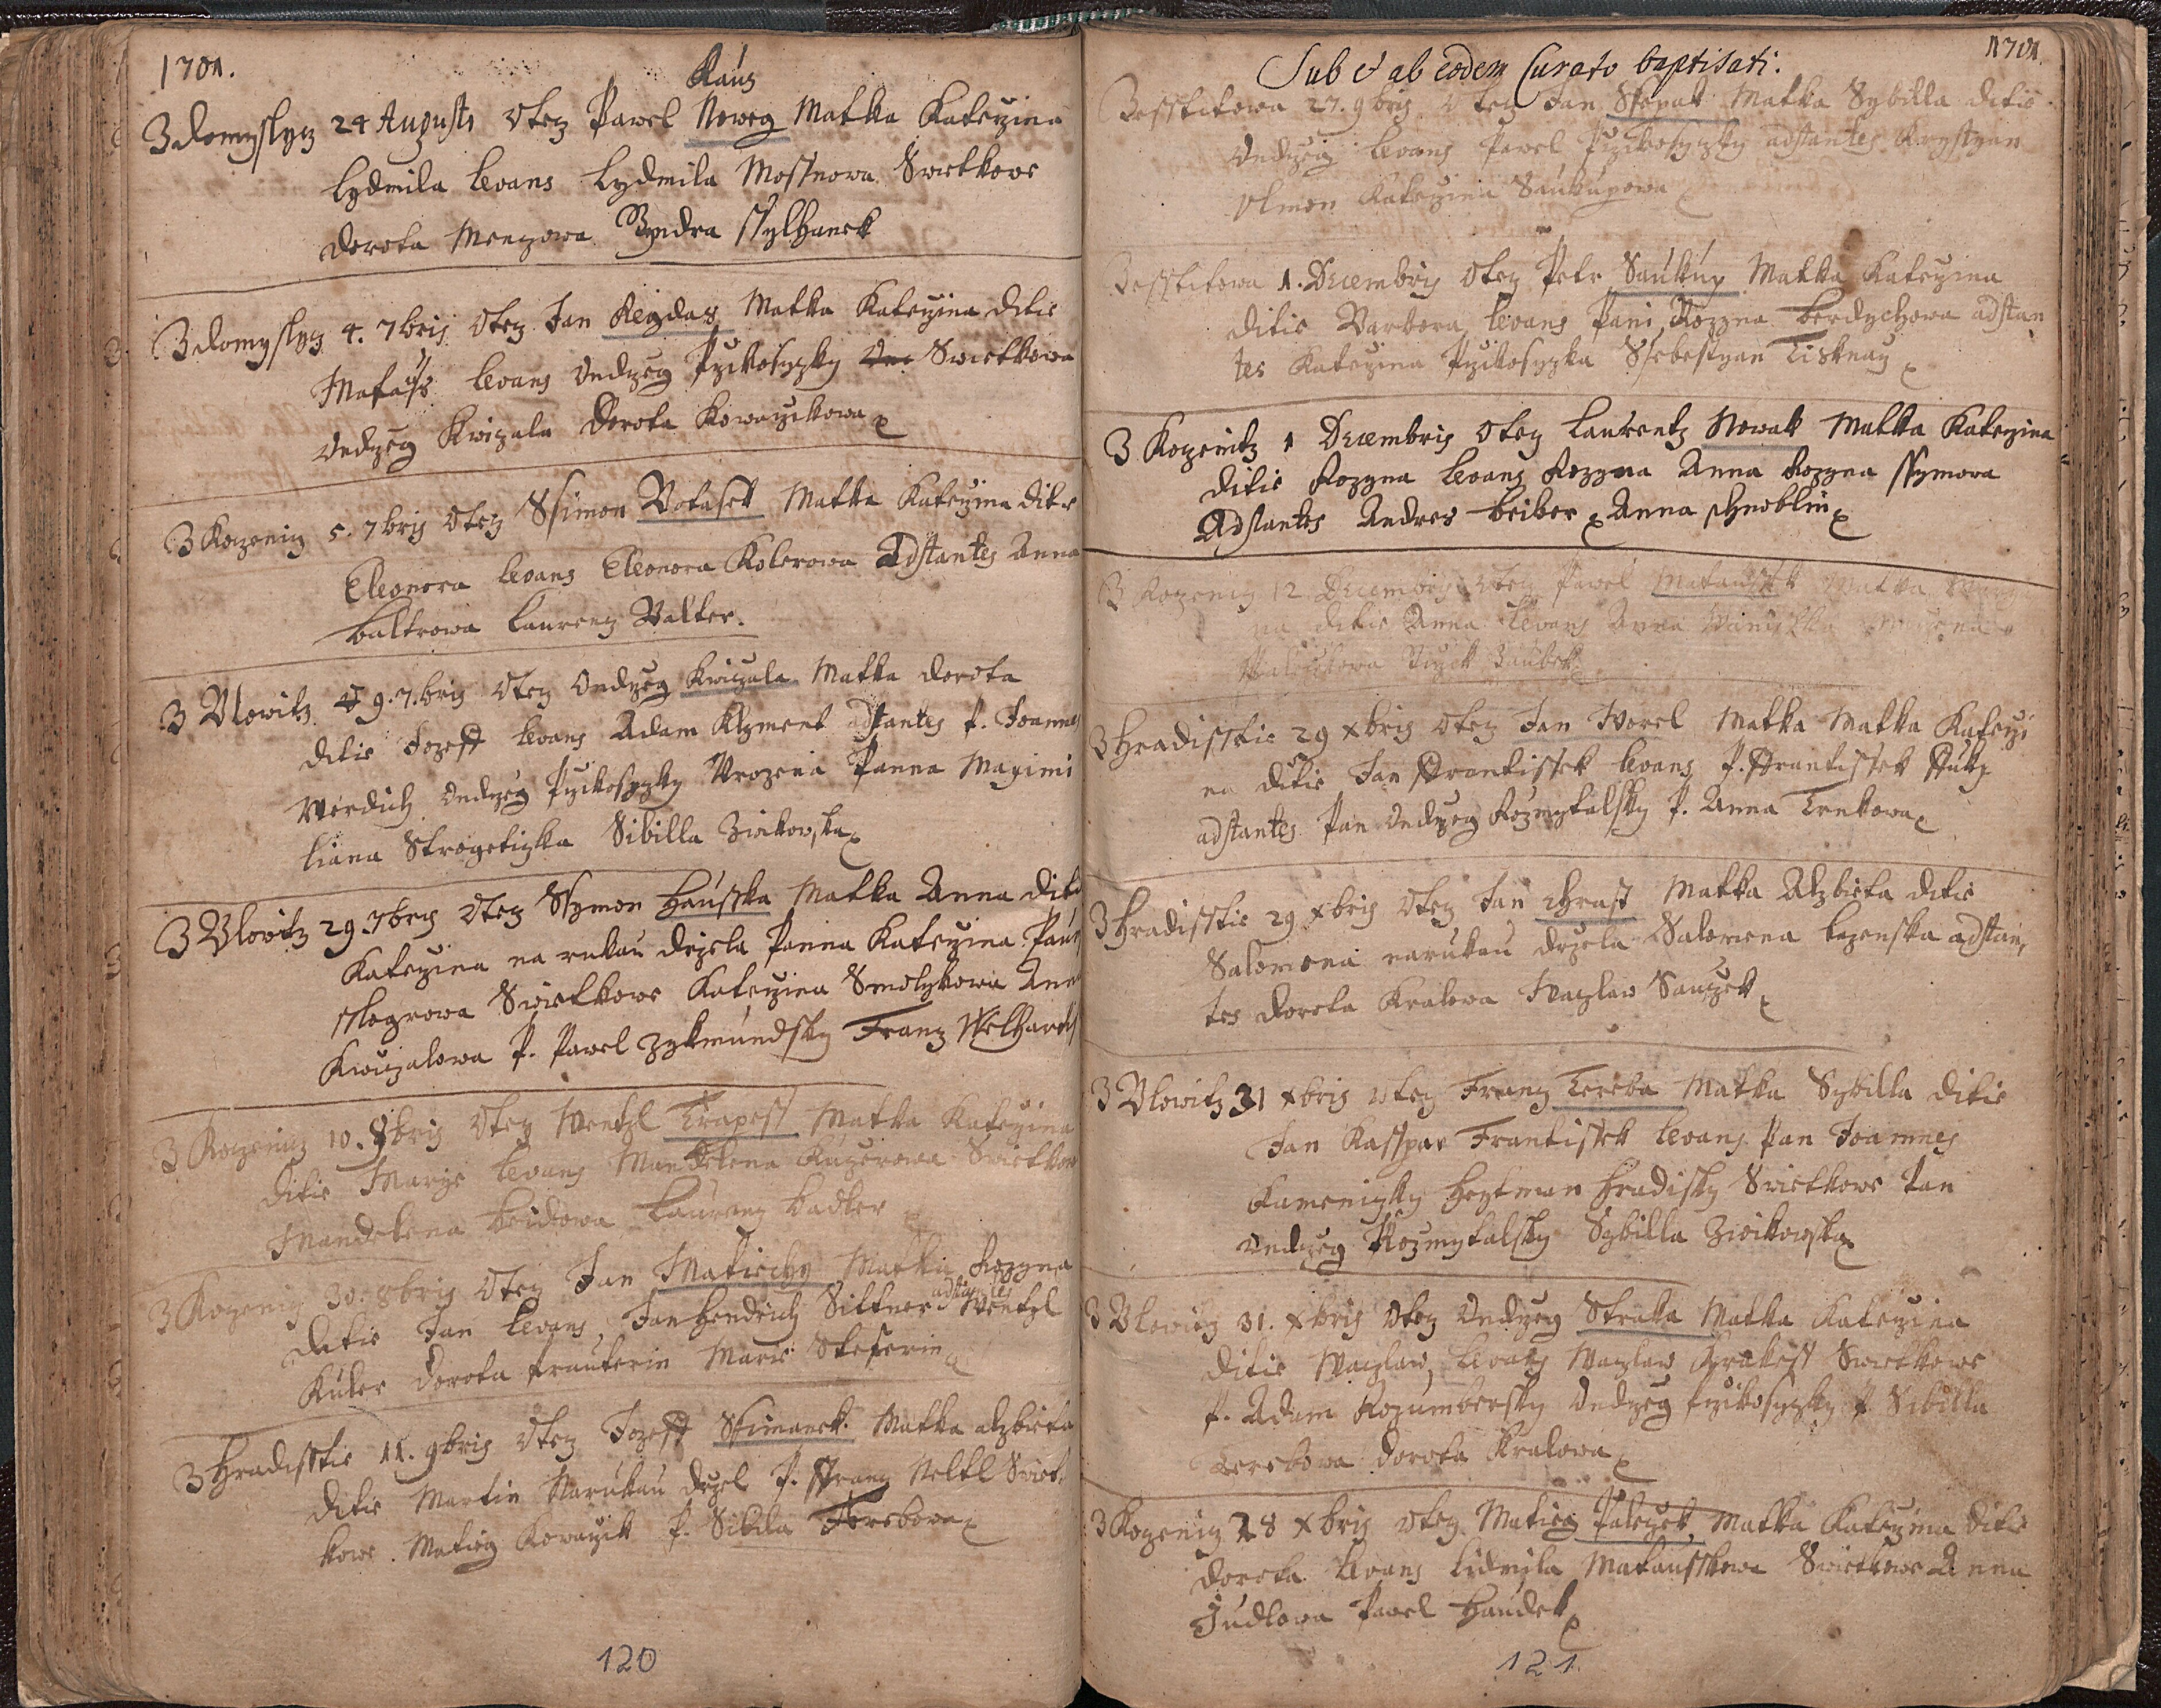 1701.
Kaus
Z domyslycz 24 Augusti Otecz Pawel Noweg Matka Kateržina
Lydmila Levans Lydmila Mostnowa Swietkowe
Dorota Menczowa Byndra Sylhanek
Z domyslycz 4. 7bris Otecz Jan Regdas Matka Kateržina ditie
Matauss Levans Ondržeg Pržikosyczky Swietkowe
Ondržeg Kwiczala Dorota Kowaržikowa
Z Kozenicz 5. 7bris Otecz Ssimon Votasek Matka Kateržina ditie
Eleonora Levans Eleonora Kolerowa Adstantes Anna
Baltrowa Laurencz Walter.
Z Blowitz 9. 7.bris Otecz Ondržeg Kwiczala Matka Dorota
ditie Jozeff Levans Adam Klyment adstantes P. Joannes
Werdich Ondržeg Pržikosyczky Urozena Panna Maximi
liana Strogeticzka Sibilla Ziwkowska
Z Blowitz 29. 7bris Otecz Ssymon Hausska Matka Anna ditie
Kateržina na rukau držela Panna Kateržina
Swietkowe Kateržina Smolykowa Anna
Kwiczalowa P. Pawel Zykmundsky Francz
Z Kozenicz 10. 8bris Otecz Wentzl Trapess Matka Kateržina
ditie Marye Levans Mandelena Kuczerowa Swietkowe
Mandelena Beidowa Laurencz Badler
Z Kozenicz 30. 8bris Otecz Jan Matiecky Matka Rozyna
ditie Jan Levans Jan Hendrich Sittner adstantes Wentzl
Kuler Dorota Trauterin Marie Steferin
Z Hradisstie 11. 9bris Otecz Jozeff Ssimanek Matka Alzbieta
ditie Martin Narukau držel P. Francz Neltl Swiet
kowe. Matieg Kowaržik P. Sibila Terebowa
120
Sub et ab eodem Curato baptisati.
1701
Besstikowa 27. 9bris Otecz Jan Matka Sybilla ditie
Ondržeg Levans Pawel Pržikosyczky adstantes Krystyan
Ulman Kateržina Saukupowa
Besstikowa 1. Decembris Otecz Petr Saukup Matka Kateržina
ditie Barbora Levans Pani Rozyna Berdychowa adstan
tes Kateržina Pržikosyczka Ssebestyan Tisknay
Z Kozenitz 1 Decembris Otecz Laurentz Nowak Matka Kateržina
ditie Rozyna Levans Rozyna Anna Rozyna Ssymowa
Adstantes Andres Beiber Anna Schnoblin
Z Kozenicz 12 Decembris Otecz Pawel Matauschek Matka
na ditie Anna Levans Anna
Z Hradisstie 29 xbris Otecz Jan Worel Matka Matka Katerži
na ditie Jan Frantissek Levans P. Frantissek
adstantes Pan Ondržeg Rozmytalsky P. Anna Trnkowa
Z Hradisstie 29 xbris Otecz Jan Chrast Matka Alzbieta ditie
Salomena narukau držela Salomena Lazenska adstan
tes Dorota Kralowa Waczlaw Sauczek
Z Blowitz 31 xbris Otecz Francz Tereba Matka Sybilla ditie
Jan Kasspar Frantissek Levans Pan Joannes
Kameniczky Heytman Hradisky Swietkowe Pan
Ondržeg Rozmytalsky Sybilla Ziwkowska
Z Blowicz 31. xbris Otecz Ondržeg Straka Matka Kateržina
ditie Waczlaw Levans Waczlaw Swietkowe
P. Adam Rozumbersky Ondržeg Pržikosyczky P. Sibilla
Terebowa Dorota Kralowa
Z Kozenicz 28 xbris Otecz Matieg Paleczek Matka Kateržina ditie
Dorota Levans Lidmila Matausskowa Swietkowe Anna
Judlowa Pawel Handek
121